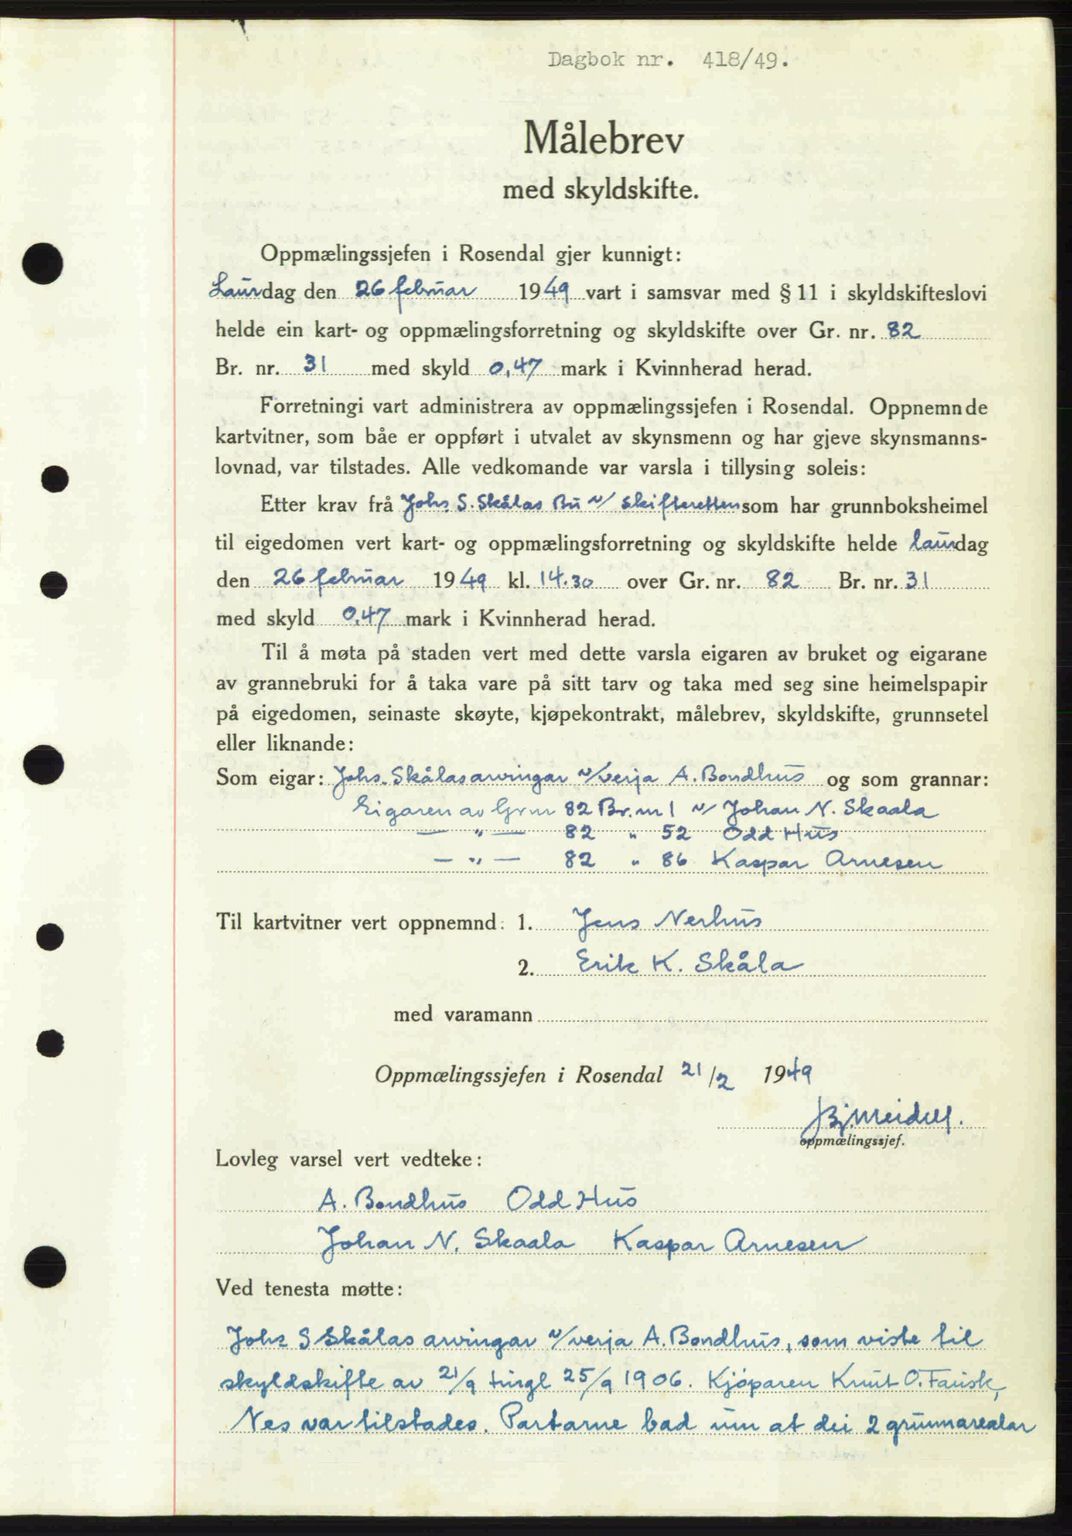 Dagbok nr. 418/49.
Målebrev
med skyldskifte.
Oppmælingssjefen i Rosendal gjer kunnigt:
Laurdag den 26 februar 1949 vart i samsvar med § 11 i skyldskifteslovi
helde ein kart- og oppmælingsforretning og skyldskifte over Gr. nr. 82
Br. nr. 31 med skyld 0,47 mark i Kvinnherad herad.
Forretningi vart administrera av oppmælingssjefen i Rosendal. Oppnemnde
kartvitner, som båe er oppført i utvalet av skynsmenn og har gjeve skynsmanns-
lovnad, var tilstades. Alle vedkomande var varsla i tillysing soleis:
Etter krav frå Johs. S. Skålas Bu v/ Skifteretten som har grunnboksheimel
til eigedomen vert kart- og oppmælingsforretning og skyldskifte helde laurdag
den 26 februar 1949 kl. 14.30 over Gr. nr. 82 Br. nr. 31
med skyld 0,47 mark i Kvinnherad herad.
Til å møta på staden vert med dette varsla eigaren av bruket og eigarane
av grannebruki for å taka vare på sitt tarv og taka med seg sine heimelspapir
på eigedomen, seinaste skøyte, kjøpekontrakt, målebrev, skyldskifte, grunnsetel
eller liknande:
Som eigar: Johs. Skålas arvingar v/verja A. Bondhus og som grannar:
Eigaren av Grnr 82 Br.nr 1 v/ Johan N. Skaala
— „ — 82 „ 52 Odd Hus
— „ — 82 „ 86 Kaspar Arnesen
Til kartvitner vert oppnemnd: 1. Jens Nerhus
2. Erik K. Skåla
med varamann
Oppmælingssjefen i Rosendal 21/2 1949
Bj. Meidell.
oppmælingssjef.
Lovleg varsel vert vedteke:
A. Bondhus Odd Hus
Johan N. Skaala Kaspar Arnesen
Ved tenesta møtte:
Johs S Skålas arvingar v/verja A. Bondhus, som viste til
skyldskifte av 21/9 tingl 25/9 1906. Kjöparen Knut O. Fausk,
Nes var tilstades. Partarne bad um at dei 2 grunnarealar